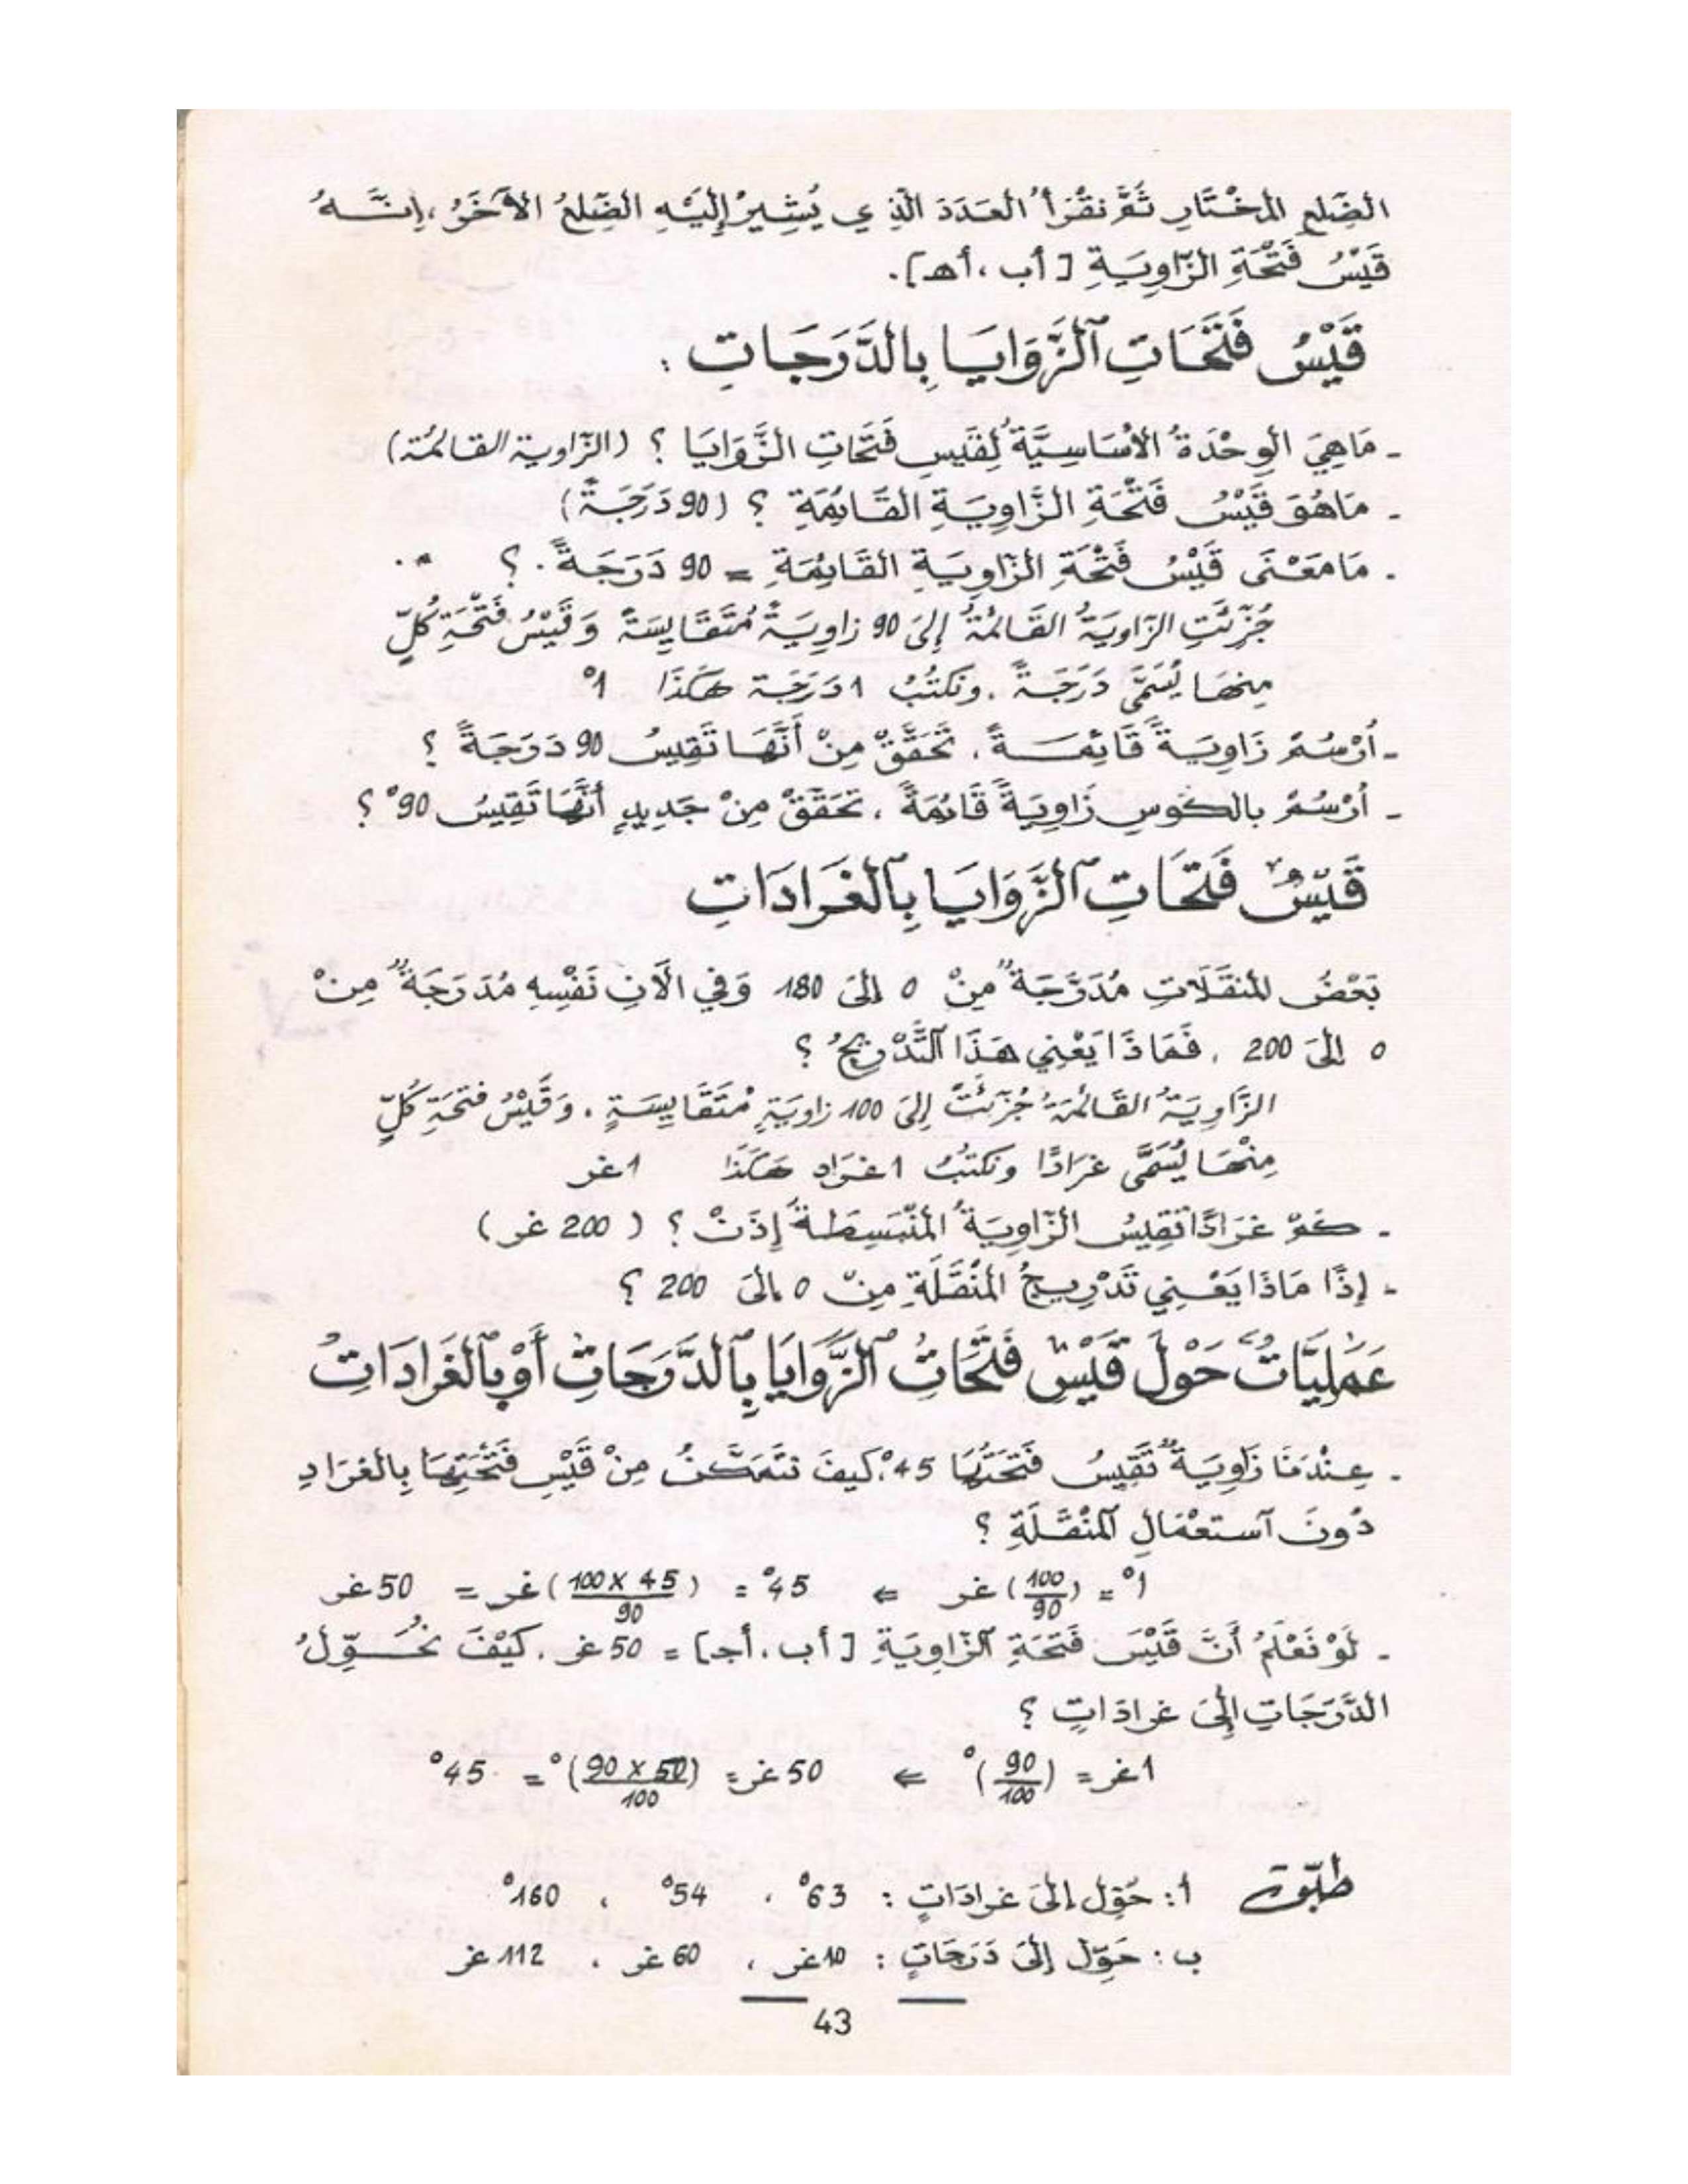 الضِّلعِ المُخْتَارِ ثُمَّ نَقْرَأُ العَدَدَ الَّذِي يُشِيرُ إِلَيْهِ الضِّلعُ الآخَرُ، إِنَّهُ
قَيْسُ فَتْحَةِ الزَّاوِيَةِ [أب، أهـ].
قَيْسُ فَتَحَاتِ ٱلزَّوَايَا بِالدَّرَجَاتِ :
- مَا هِيَ الوِحْدَةُ الأَسَاسِيَّةُ لِقَيْسِ فَتَحَاتِ الزَّوَايَا ؟ (الزّاوية القائمة)
- مَا هُوَ قَيْسُ فَتْحَةِ الزَّاوِيَةِ القَائِمَةِ ؟ (90 دَرَجَةً)
- مَا مَعْنَى قَيْسُ فَتْحَةِ الزَّاوِيَةِ القَائِمَةِ = 90 دَرَجَةً . ؟
جُزِّئَتِ الزَّاوِيَةُ القَائِمَةُ إِلَى 90 زاوِيَةً مُتَقَايِسَةً وَقَيْسُ فَتْحَةِ كُلٍّ
مِنهَا يُسَمَّى دَرَجَةً . ونَكتُبُ 1 دَرَجَة هَكَذَا 1°
- أُرْسُمْ زَاوِيَةً قَائِمَةً . تَحَقَّقْ مِنْ أَنَّهَا تَقِيسُ 90 دَرَجَةً ؟
- أُرْسُمْ بالكُوسِ زَاوِيَةً قَائِمَةً . تَحَقَّقْ مِنْ جَدِيدٍ أَنَّهَا تَقِيسُ 90° ؟
قَيْسُ فَتَحَاتِ ٱلزَّوَايَا بِٱلغَرَادَاتِ
بَعْضُ المنقَلَاتِ مُدَرَّجَةٌ مِنْ 0 إلَى 180 وَفي الآنِ نَفْسِهِ مُدَرَّجَةٌ مِنْ
0 إلَى 200 . فَمَاذَا يَعْنِي هَذَا ٱلتَّدْرِيجُ ؟
الزَّاوِيَةُ القَائِمَةُ جُزِّئَتْ إلَى 100 زاوِيَةٍ مُتَقَايِسَةٍ . وَقَيْسُ فتحَةِ كُلٍّ
مِنْهَا يُسَمَّى غرَادًا ونكتُبُ 1 غرَاد هَكَذَا 1 غر
- كَمْ غرَادًا تَقِيسُ الزّاوِيَةُ المُنْبَسِطَةُ إِذَنْ ؟ ( 200 غر )
- إِذًا مَاذَا يَعْنِي تَدْرِيجُ المُنْقَلَةِ مِنْ 0 إلَى 200 ؟
عَمَلِيَّاتٌ حَوْلَ قَيْسِ فَتَحَاتُ ٱلزَّوَايَا بِٱلدَّرَجَاتِ أَوْ بِٱلغَرَادَاتِ
- عِنْدَنَا زَاوِيَةٌ تَقِيسُ فَتْحَتُهَا 45°، كيفَ نتَمَكَّنُ مِنْ قَيْسِ فَتْحَتِهَا بِالغرَادِ
دُونَ ٱستعْمَالِ ٱلمَنْقَلَةِ ؟
1° = (100/90) غر ⇐ 45° = (100 X 45 / 90) غر = 50 غر
- لَوْ نَعْلَمُ أَنَّ قَيْسَ فَتْحَةِ ٱلزّاوِيَةِ [أب، أجـ] = 50 غر . كَيْفَ نُحَوِّلُ
الدَّرَجَاتِ إِلَى غرادَاتٍ ؟
1 غر = (90/100)° ⇐ 50 غر = (90 X 50 / 100)° = 45°
طبّق أ : حَوِّل إلَى غرادَاتٍ : 63° ، 54° ، 160°
ب : حَوِّل إلَى دَرَجَاتٍ : 10 غر ، 60 غر ، 112 غر
43